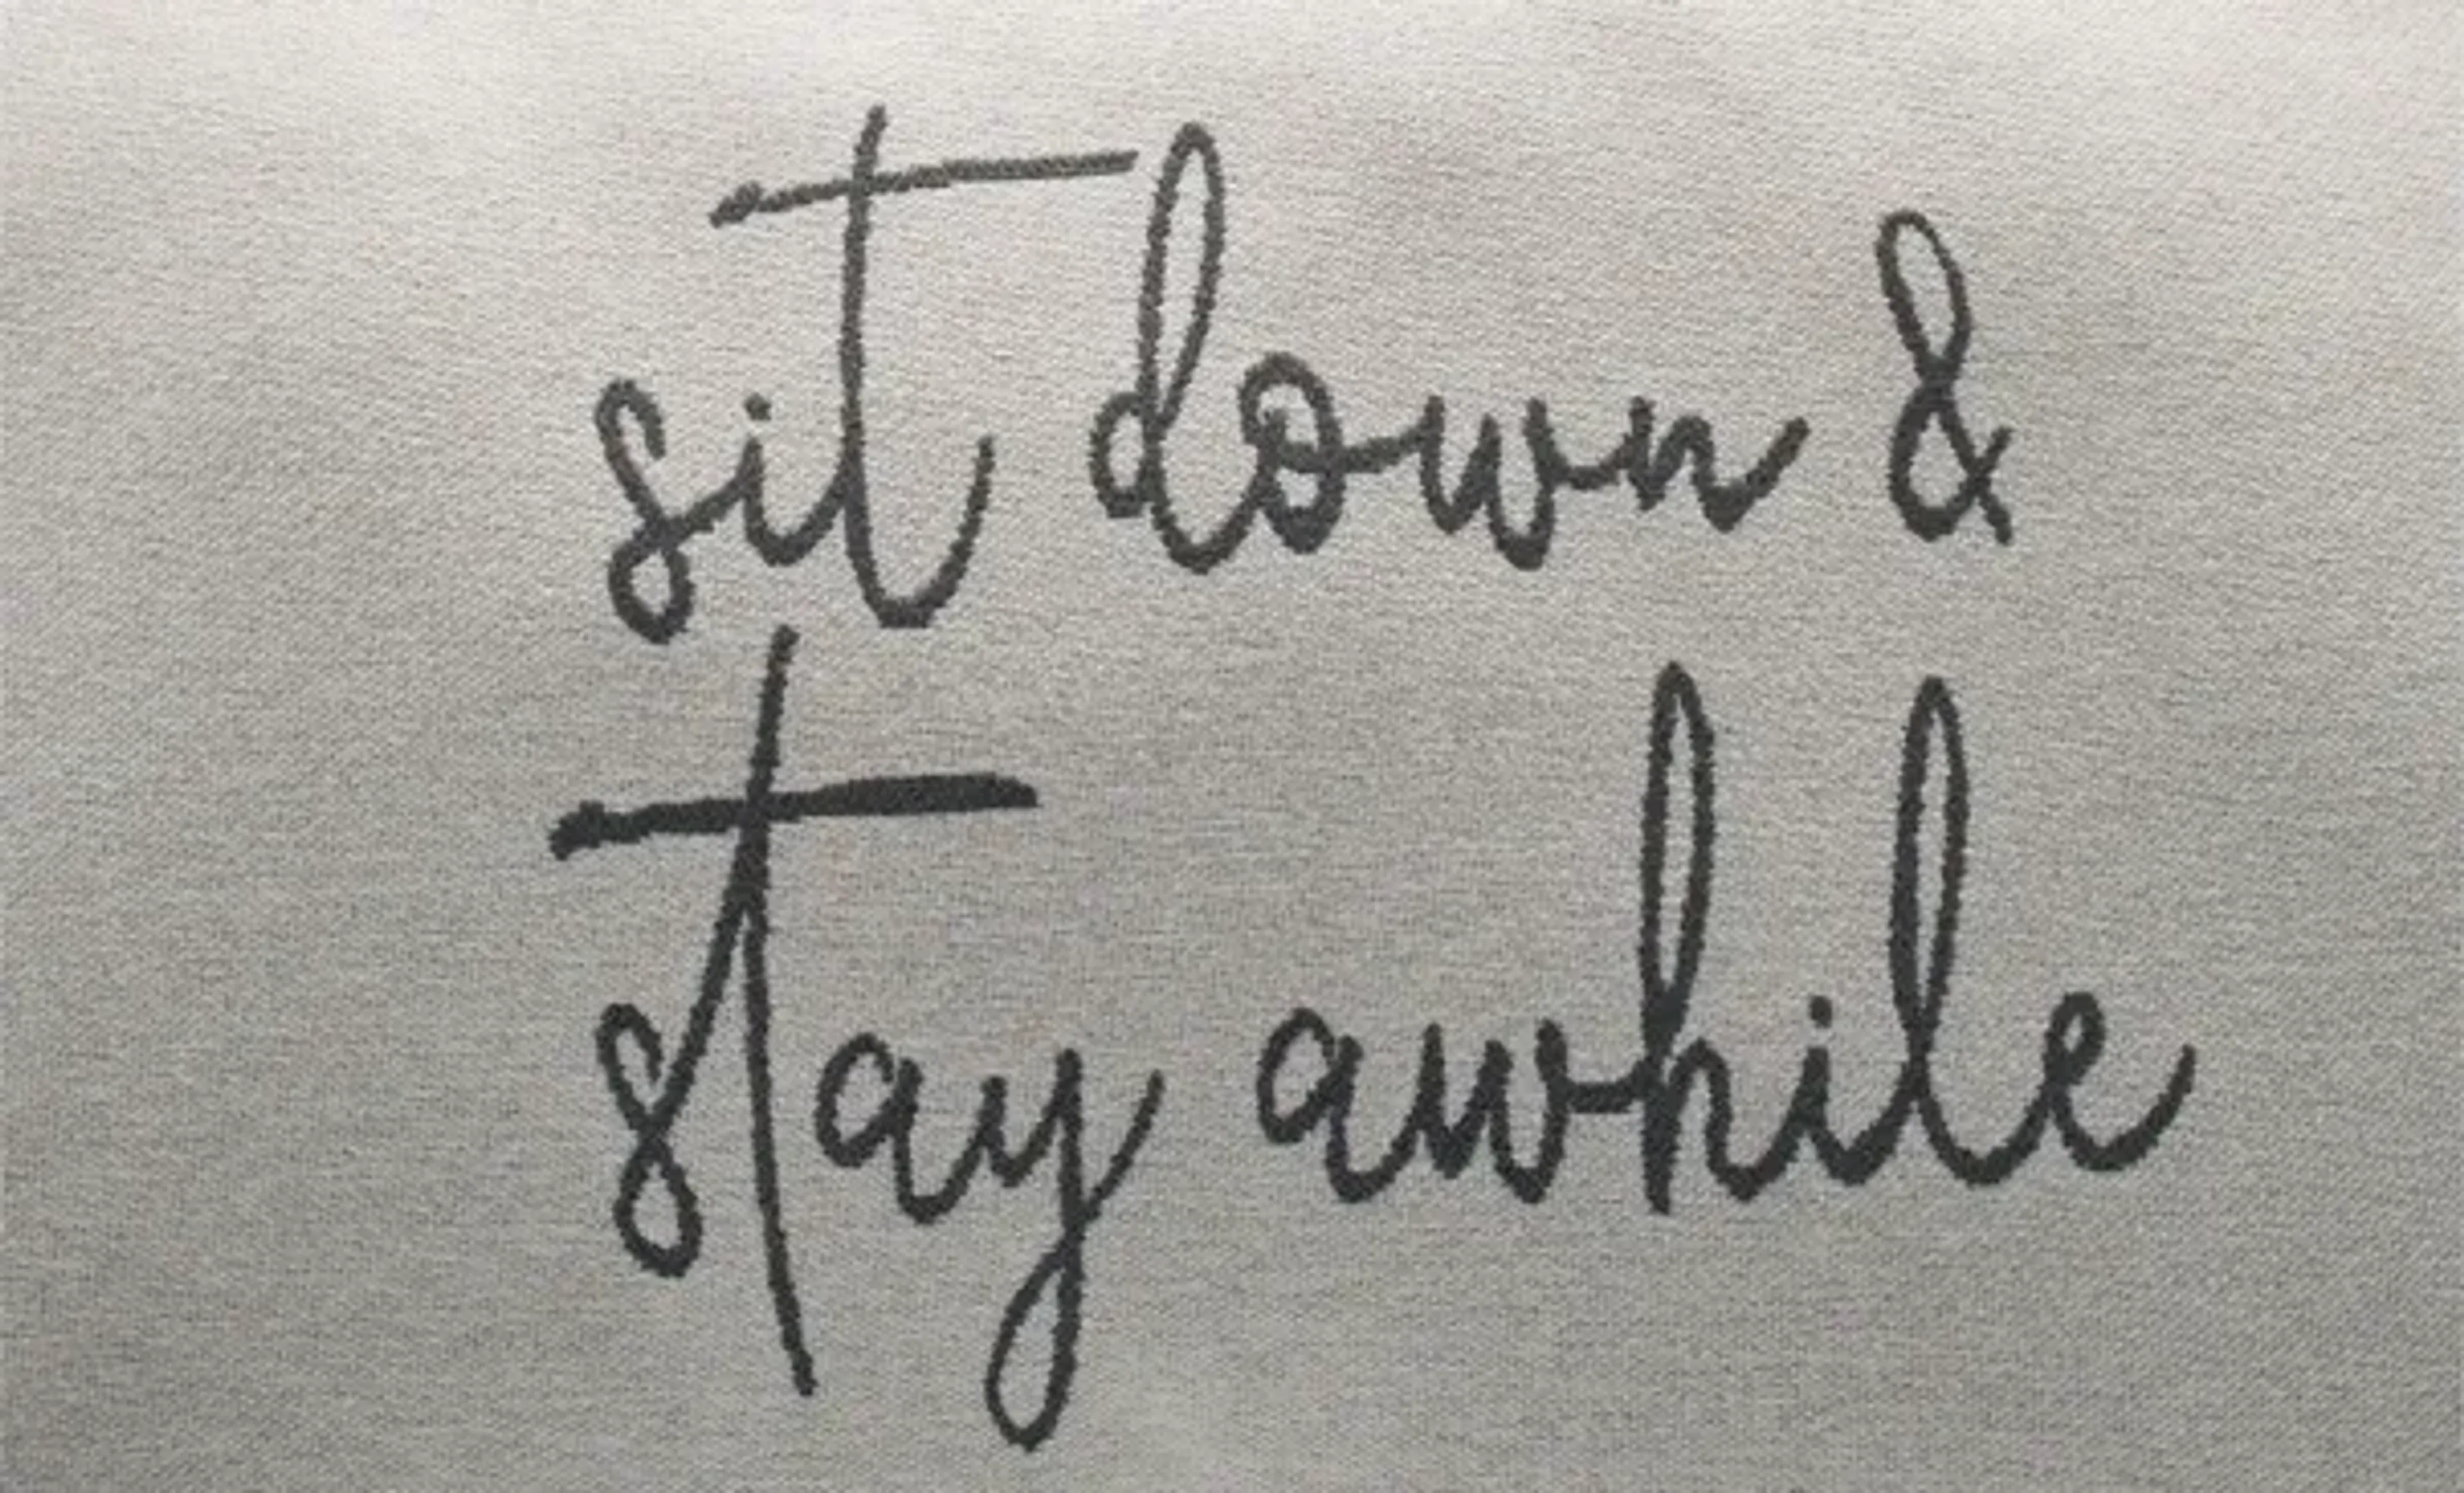 sit down &
stay awhile